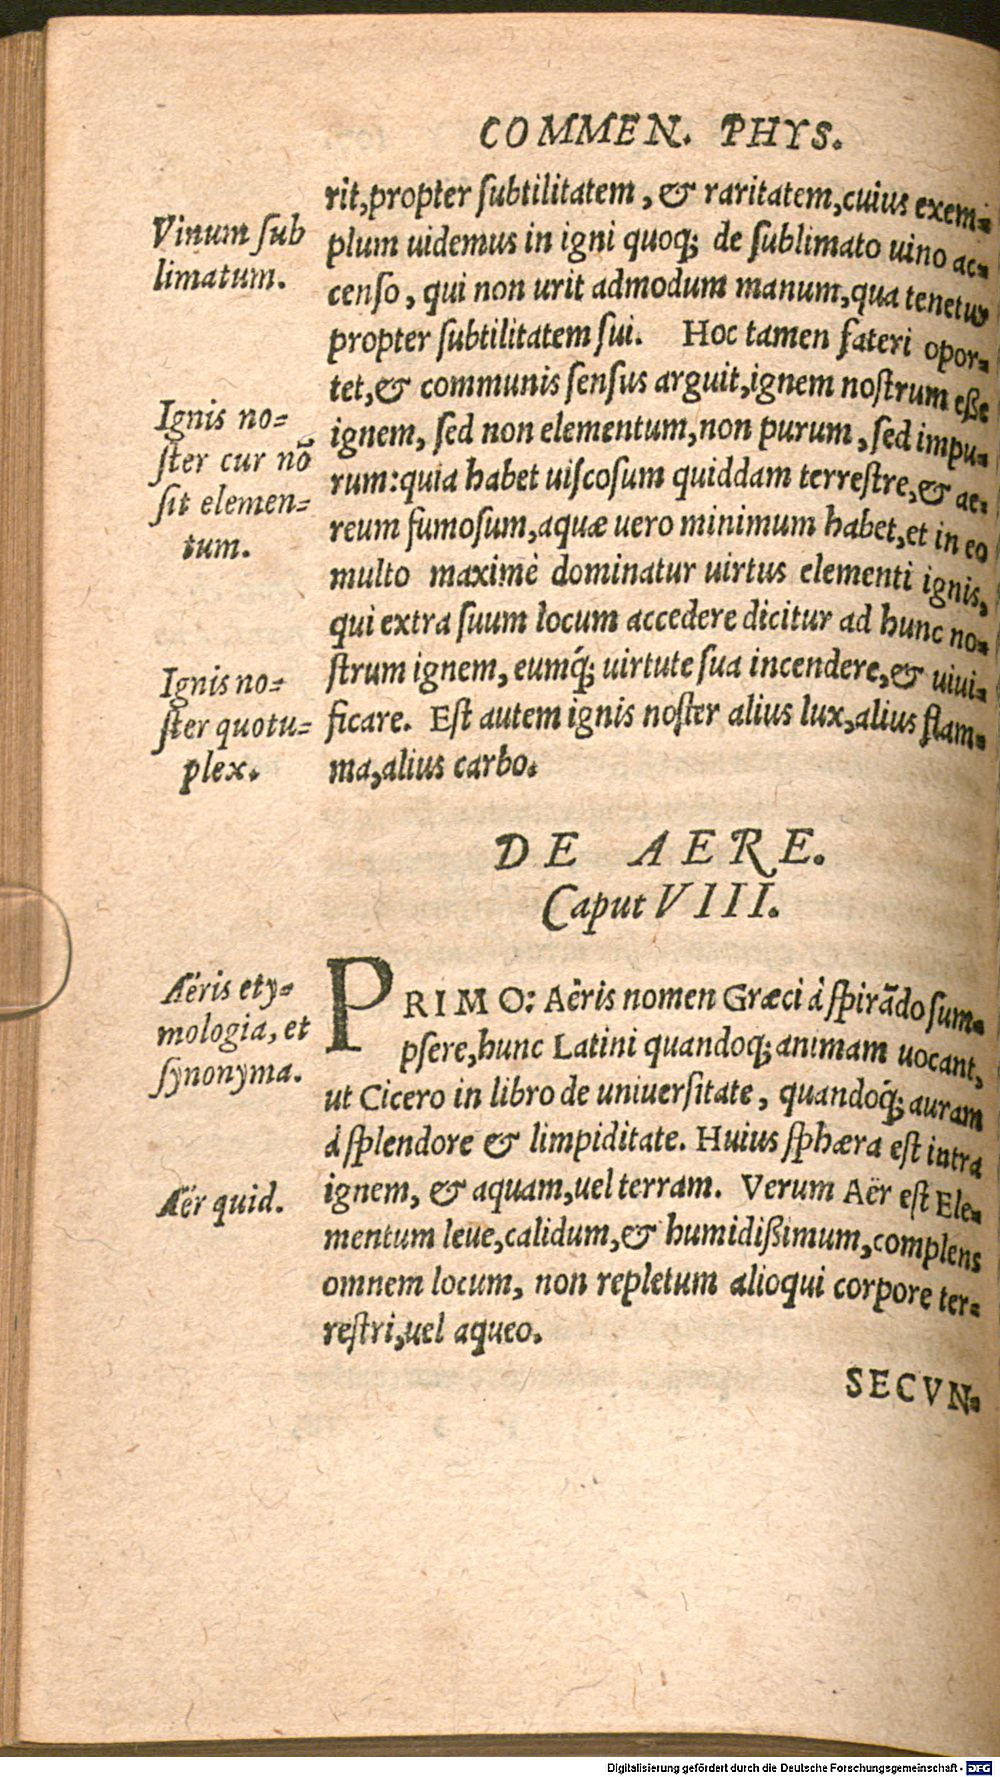 COMMEN. PHYS.
rit,propter ſubtilitatem , & raritatem,cuius exem-
plum uidemus in igni quoq; de ſublimato uino ac-
cenſo , qui non urit admodum manum,qua tenetur
propter ſubtilitatem ſui. Hoc tamen fateri opor-
tet,& communis ſenſus arguit,ignem noſtrum eße
ignem, ſed non elementum,non purum , ſed impu-
rum:quia habet uiſcoſum quiddam terreſtre,& ae-
reum fumoſum,aquæ uero minimum habet,et in eo
multo maximè dominatur uirtus elementi ignis,
qui extra ſuum locum accedere dicitur ad hunc no-
ſtrum ignem, eumq́; uirtute ſua incendere,& uiui-
ficare. Eſt autem ignis noſter alius lux,alius flam-
ma,alius carbo.
Vinum ſub
limatum.
Ignis no-
ſter cur nō
ſit elemen-
tum.
Ignis no-
ſter quotu-
plex.
DE AERE.
Caput VIII.
PRIMO: Aëris nomen Græci à ſpirãdo ſum-
pſere,hunc Latini quandoq; animam uocant,
ut Cicero in libro de uniuerſitate , quandoq́; auram
à ſplendore & limpiditate. Huius ſphæra eſt intra
ignem, & aquam,uel terram. Verum Aër eſt Ele-
mentum leue,calidum,& humidißimum,complens
omnem locum, non repletum alioqui corpore ter-
reſtri,uel aqueo.
Aëris ety-
mologia, et
ſynonyma.
Aër quid.
SECVN-
Digitalisierung gefördert durch die Deutsche Forschungsgemeinschaft - DFG